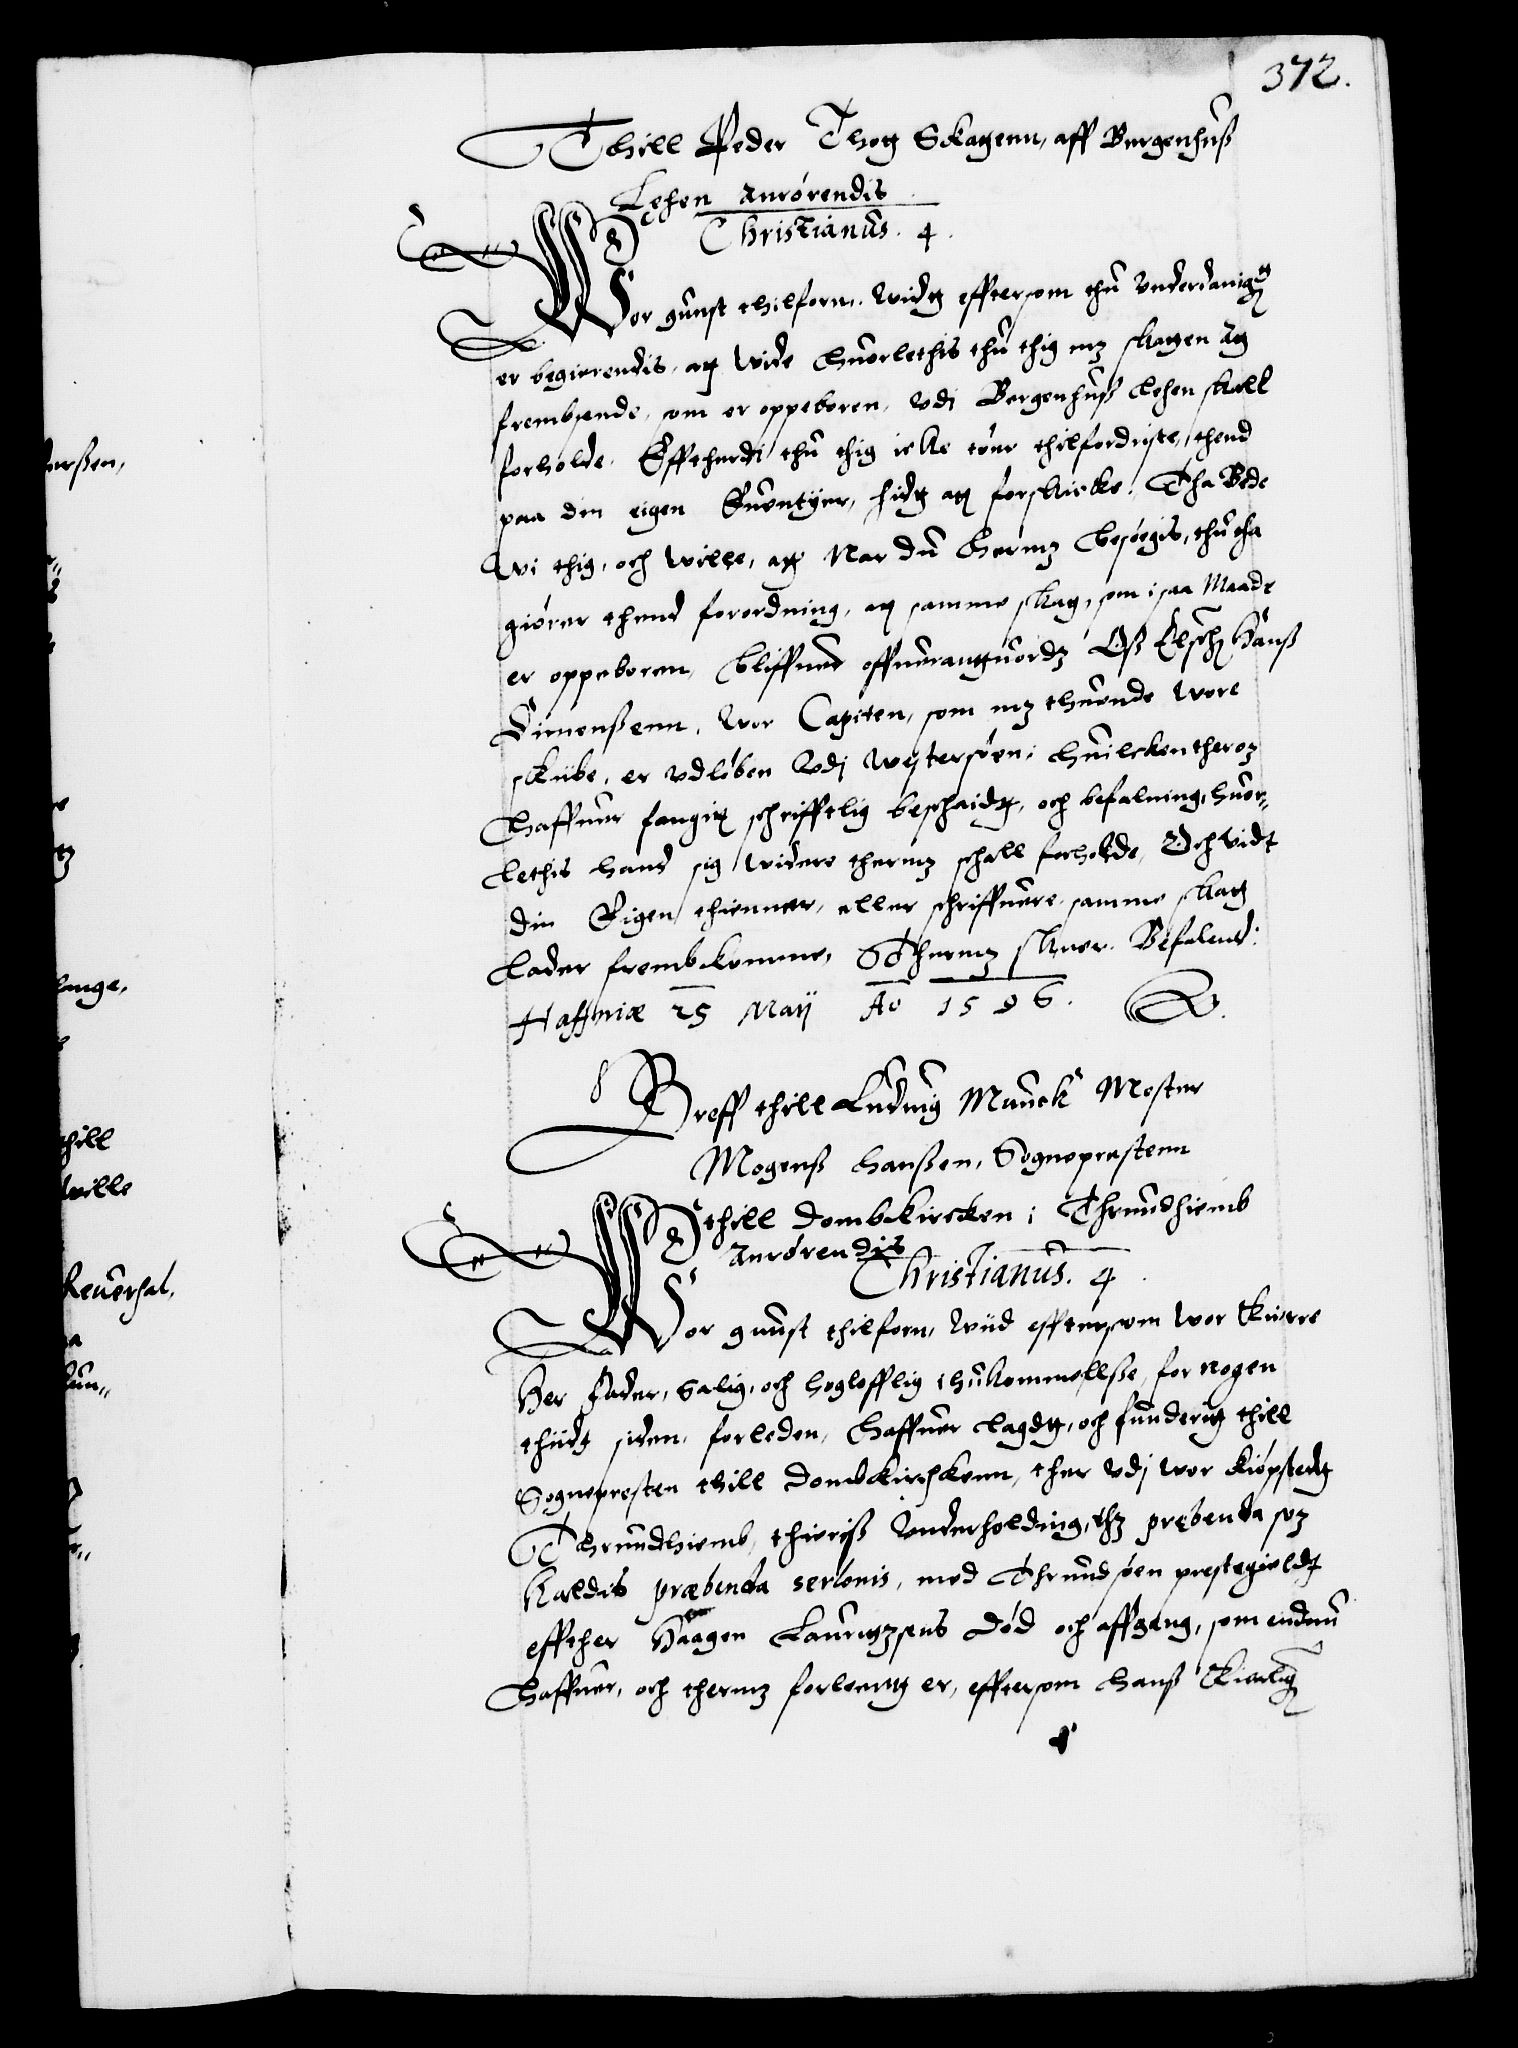 372.
Thill Peder Thott Skatgenn, aff Bergenhuß
Lehen anrörendis
Christianus. 4.
Wor gunst thilforn. Widt effterson thu underdanigst
er begierendis, att wide huorlethis thu thig mz skatgen att
frembsende, som er oppeboren, udi Bergenhuß Lehen skall
forholde. Efftherdi thu thig icke töer thilfordriste, thend
paa din eigen Euentyer, hidt att forskicke. Tha Bede
wi thig, och wille, att Nar du hermz besögis, thu tha
giörer thend forordning, att samme skatt, som i saa Maade
er oppeboren, bliffuer offuerantuordz Oß Elsch Hanß
Simenßenn, wor Capiten, som mz thuende wore
skibe, er udlöben udi westersöen, huilcken theroz
haffuer fangit schrifftlig beschaidt, och befalning, huor-
lethis hand sig widere thermz schall forholde, Och widt
din Eigen thienner, eller schriffuere samme skatt
lader frembkomme, Thermz skeer. Befalend:
Haffniæ 25 Maij Ao 1596.
Breff thill Ludvig Munck Mester
Mogenß Hanßen, Sognepresten
thill Dombkircken i Thrundhiemb
anrörendis
Christianus. 4.
Wor gunst thilforn, Wiid efftersom wor kierre
Her Fader, Salig, och höglofflig ihukommellße, for nogen
thiidt siden, forleden, haffuer lagdt, och funderit thill
Sognepresten thill Dombkirchkenn, ther udj wor kiöpstedt
Thrundhiemb, thieriß underholding, thz prebenda soz
kaldis præbenda serlonis, med Thrundsöen prestegieldt
effther Haagen Lauritzsens död och affgang, som endnu
haffuer, och thermz forlentt er, efftersom hanß Kierlig
erßen,
lange,
thill
wille
Reuersal,